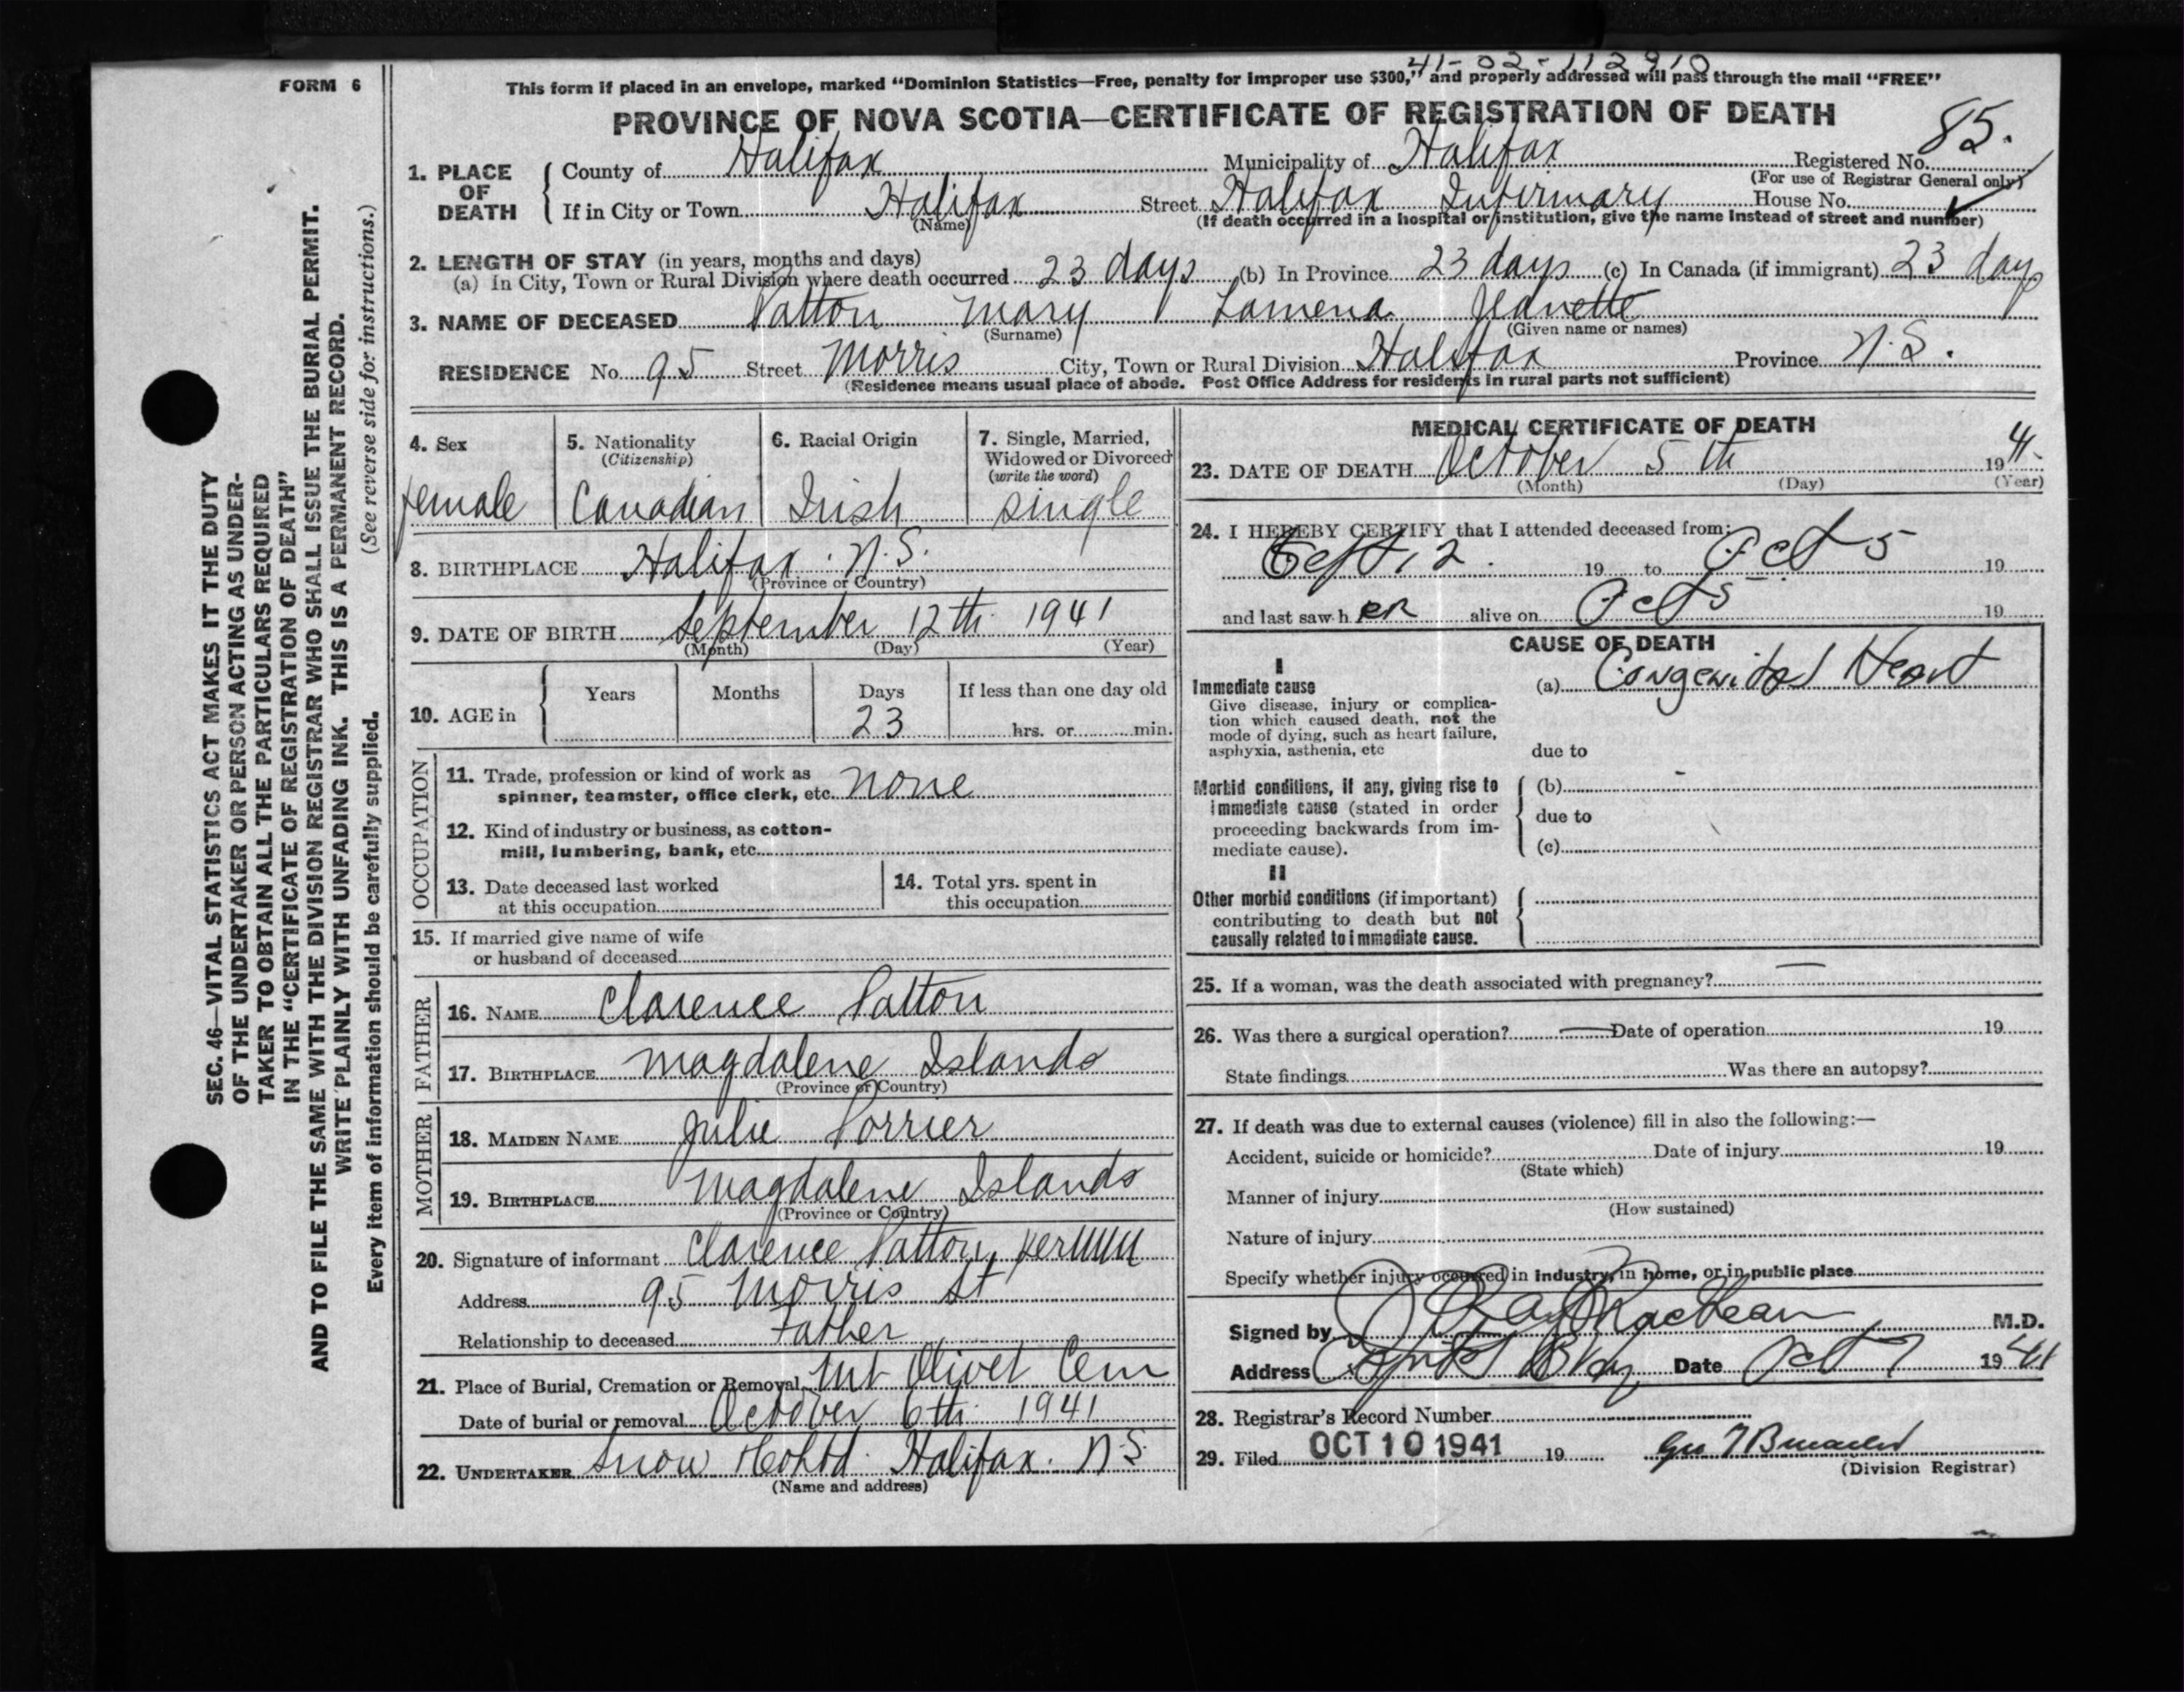 41-02-112910
FORM 6
This form if placed in an envelope, marked "Dominion Statistics—Free, penalty for improper use $300," and properly addressed will pass through the mail "FREE"
PROVINCE OF NOVA SCOTIA—CERTIFICATE OF REGISTRATION OF DEATH
85.
1. PLACE OF DEATH { County of Halifax Municipality of Halifax Registered No.
(For use of Registrar General only)
If in City or Town Halifax Street Halifax Infirmary House No.
(Name) (If death occurred in a hospital or institution, give the name instead of street and number)
2. LENGTH OF STAY (in years, months and days)
(a) In City, Town or Rural Division where death occurred 23 days (b) In Province 23 days (c) In Canada (if immigrant) 23 days
3. NAME OF DECEASED Patton Mary Lamena Jeanette
(Surname) (Given name or names)
RESIDENCE No. 95 Street Morris City, Town or Rural Division Halifax Province N.S.
(Residence means usual place of abode. Post Office Address for residents in rural parts not sufficient)
4. Sex
female
5. Nationality
(Citizenship)
Canadian
6. Racial Origin
Irish
7. Single, Married,
Widowed or Divorced
(write the word)
single
8. BIRTHPLACE Halifax. N.S.
(Province or Country)
9. DATE OF BIRTH September 12th 1941
(Month) (Day) (Year)
10. AGE in { Years Months Days If less than one day old
23 hrs. or min.
OCCUPATION
11. Trade, profession or kind of work as
spinner, teamster, office clerk, etc. none
12. Kind of industry or business, as cotton-
mill, lumbering, bank, etc.
13. Date deceased last worked
at this occupation
14. Total yrs. spent in
this occupation
15. If married give name of wife
or husband of deceased
FATHER
16. NAME Clarence Patton
17. BIRTHPLACE Magdalene Islands
(Province or Country)
MOTHER
18. MAIDEN NAME Julie Porrier
19. BIRTHPLACE Magdalene Islands
(Province or Country)
20. Signature of informant Clarence Patton, per
Address 95 Morris St
Relationship to deceased Father
21. Place of Burial, Cremation or Removal Mt Olivet Cem
Date of burial or removal October 6th 1941
22. UNDERTAKER Snow & Co Ltd. Halifax. N.S.
(Name and address)
MEDICAL CERTIFICATE OF DEATH
23. DATE OF DEATH October 5th 1941.
(Month) (Day) (Year)
24. I HEREBY CERTIFY that I attended deceased from:
Sept 12. 19 to Oct 5 19
and last saw her alive on Oct 5 19
CAUSE OF DEATH
I
Immediate cause
Give disease, injury or complica-
tion which caused death, not the
mode of dying, such as heart failure,
asphyxia, asthenia, etc
(a) Congenital Heart
due to
Morbid conditions, if any, giving rise to
immediate cause (stated in order
proceeding backwards from im-
mediate cause).
(b)
due to
(c)
II
Other morbid conditions (if important)
contributing to death but not
causally related to immediate cause.
25. If a woman, was the death associated with pregnancy? —
26. Was there a surgical operation? — Date of operation 19
State findings Was there an autopsy?
27. If death was due to external causes (violence) fill in also the following:—
Accident, suicide or homicide? Date of injury 19
(State which)
Manner of injury
(How sustained)
Nature of injury
Specify whether injury occurred in industry, in home, or in public place
Signed by MacLean M.D.
Address Date Oct 7 1941
28. Registrar's Record Number
29. Filed OCT 10 1941 19
(Division Registrar)
SEC. 46—VITAL STATISTICS ACT MAKES IT THE DUTY
OF THE UNDERTAKER OR PERSON ACTING AS UNDER-
TAKER TO OBTAIN ALL THE PARTICULARS REQUIRED
IN THE "CERTIFICATE OF REGISTRATION OF DEATH"
AND TO FILE THE SAME WITH THE DIVISION REGISTRAR WHO SHALL ISSUE THE BURIAL PERMIT.
WRITE PLAINLY WITH UNFADING INK. THIS IS A PERMANENT RECORD.
(See reverse side for instructions.)
Every item of information should be carefully supplied.